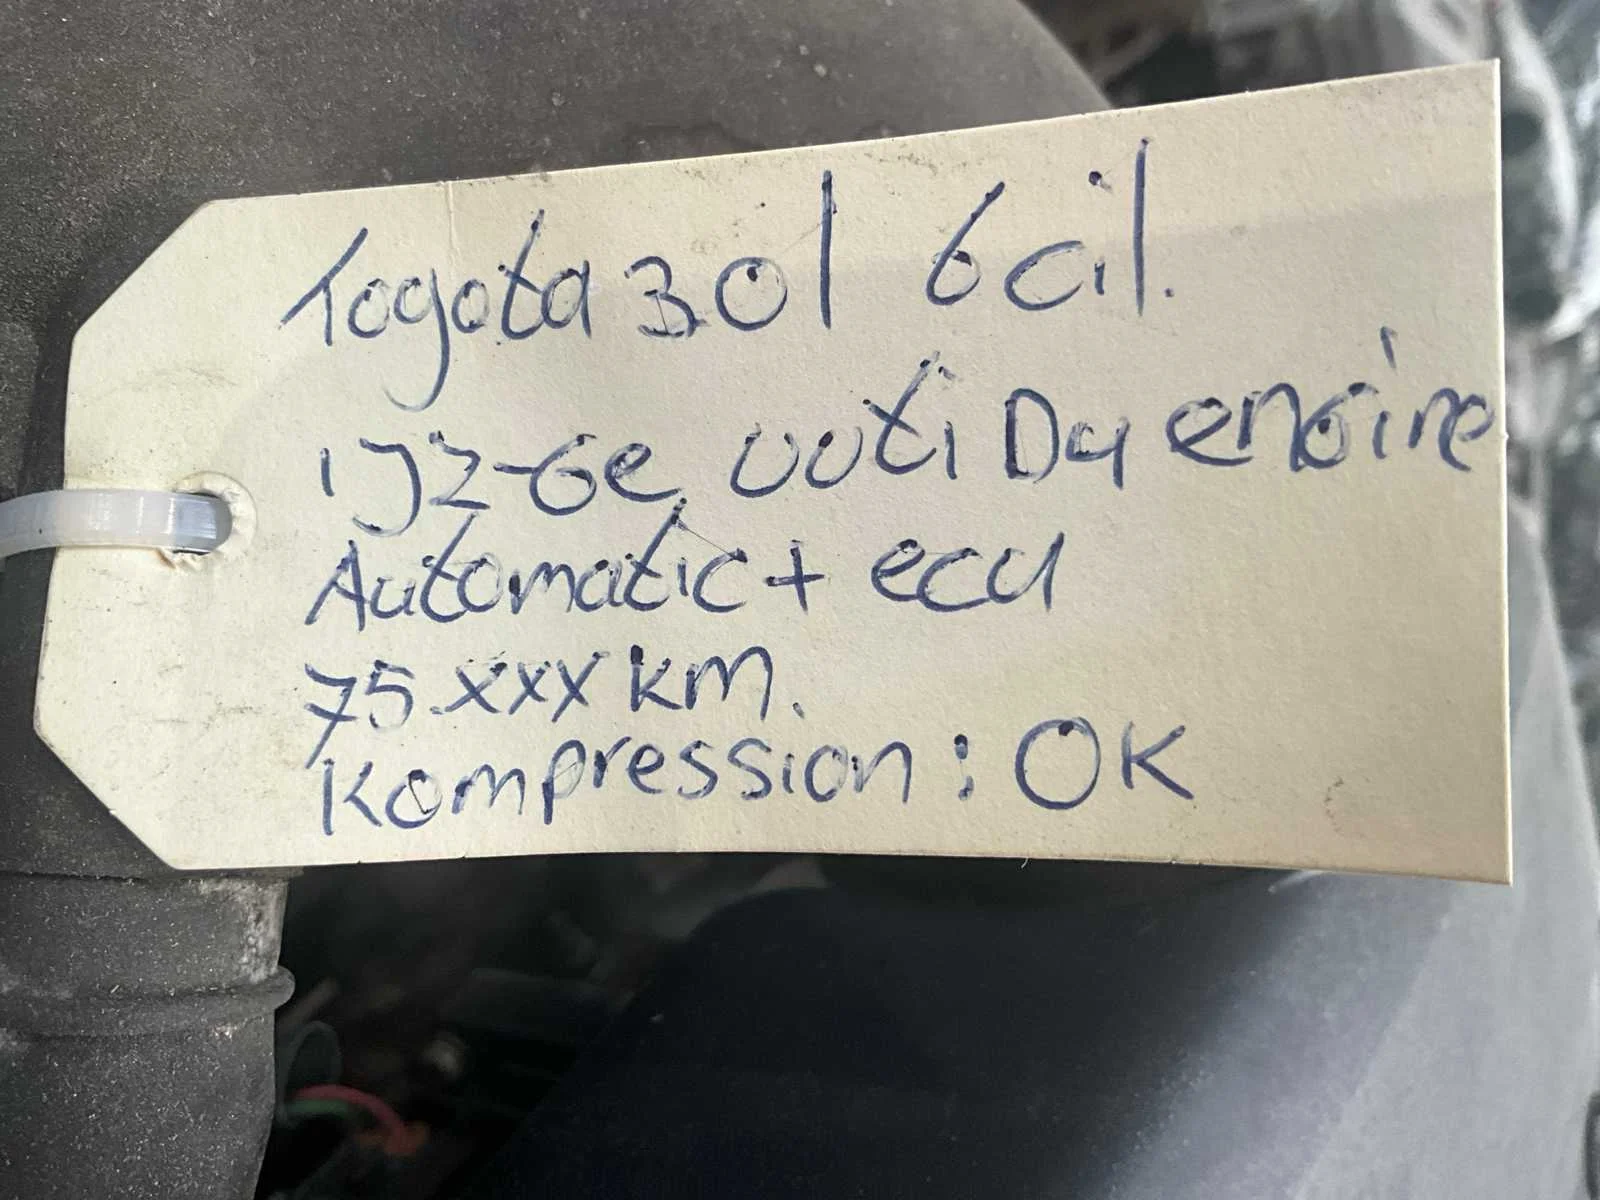 Toyota 3.0l 6cil.
1JZ-Ge vvti D4 engine
Automatic + ecu
75.xxx km.
Kompression: OK